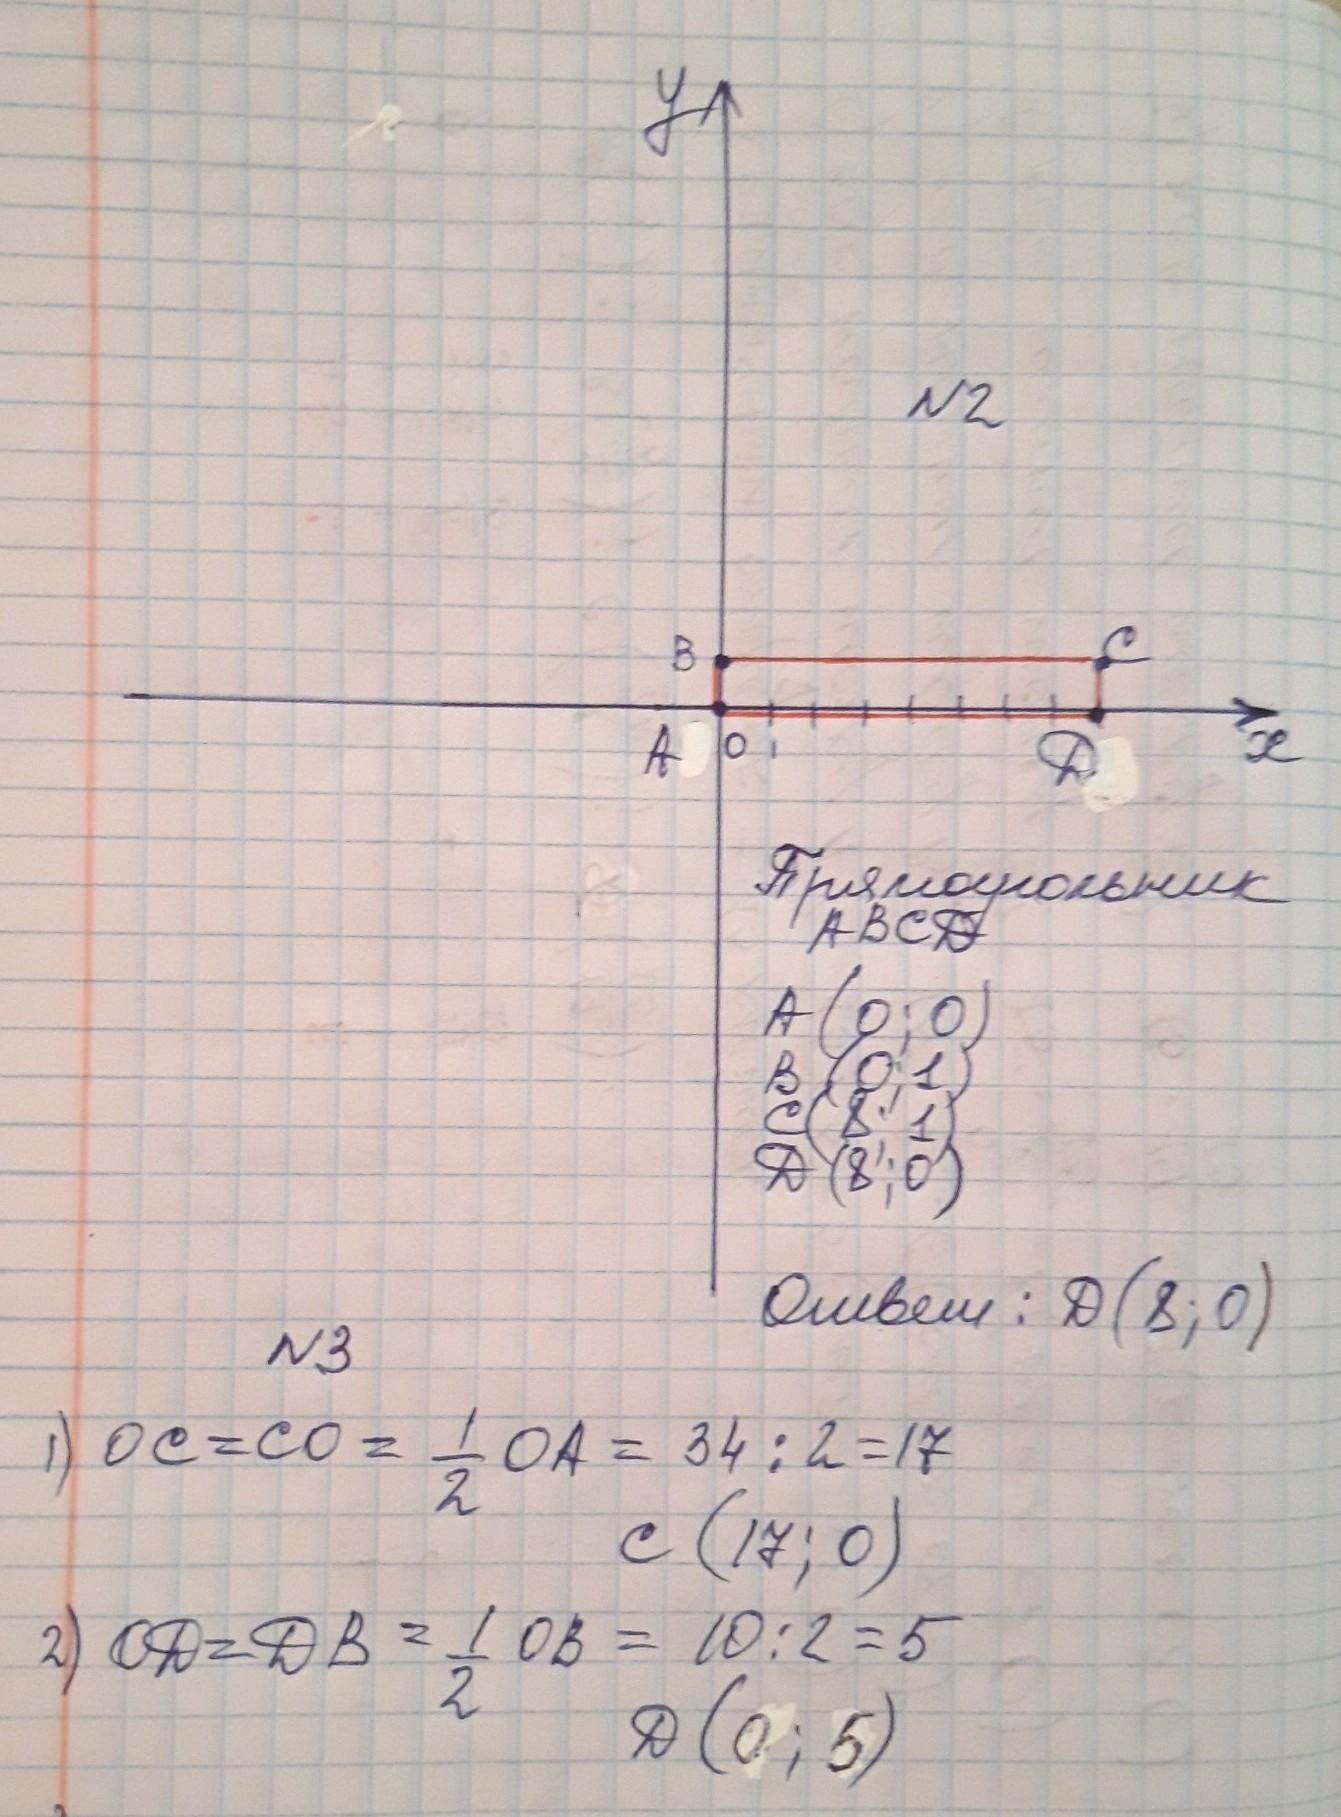 y
N2
B C
A 0 1 D x
Прямоугольник
ABCD
A(0;0)
B(0;1)
C(8;1)
D(8;0)
Ответ: D(8;0)
N3
1) OC=CO= 1/2 OA = 34:2=17
C(17;0)
2) OD=DB = 1/2 OB = 10:2=5
D(0;5)